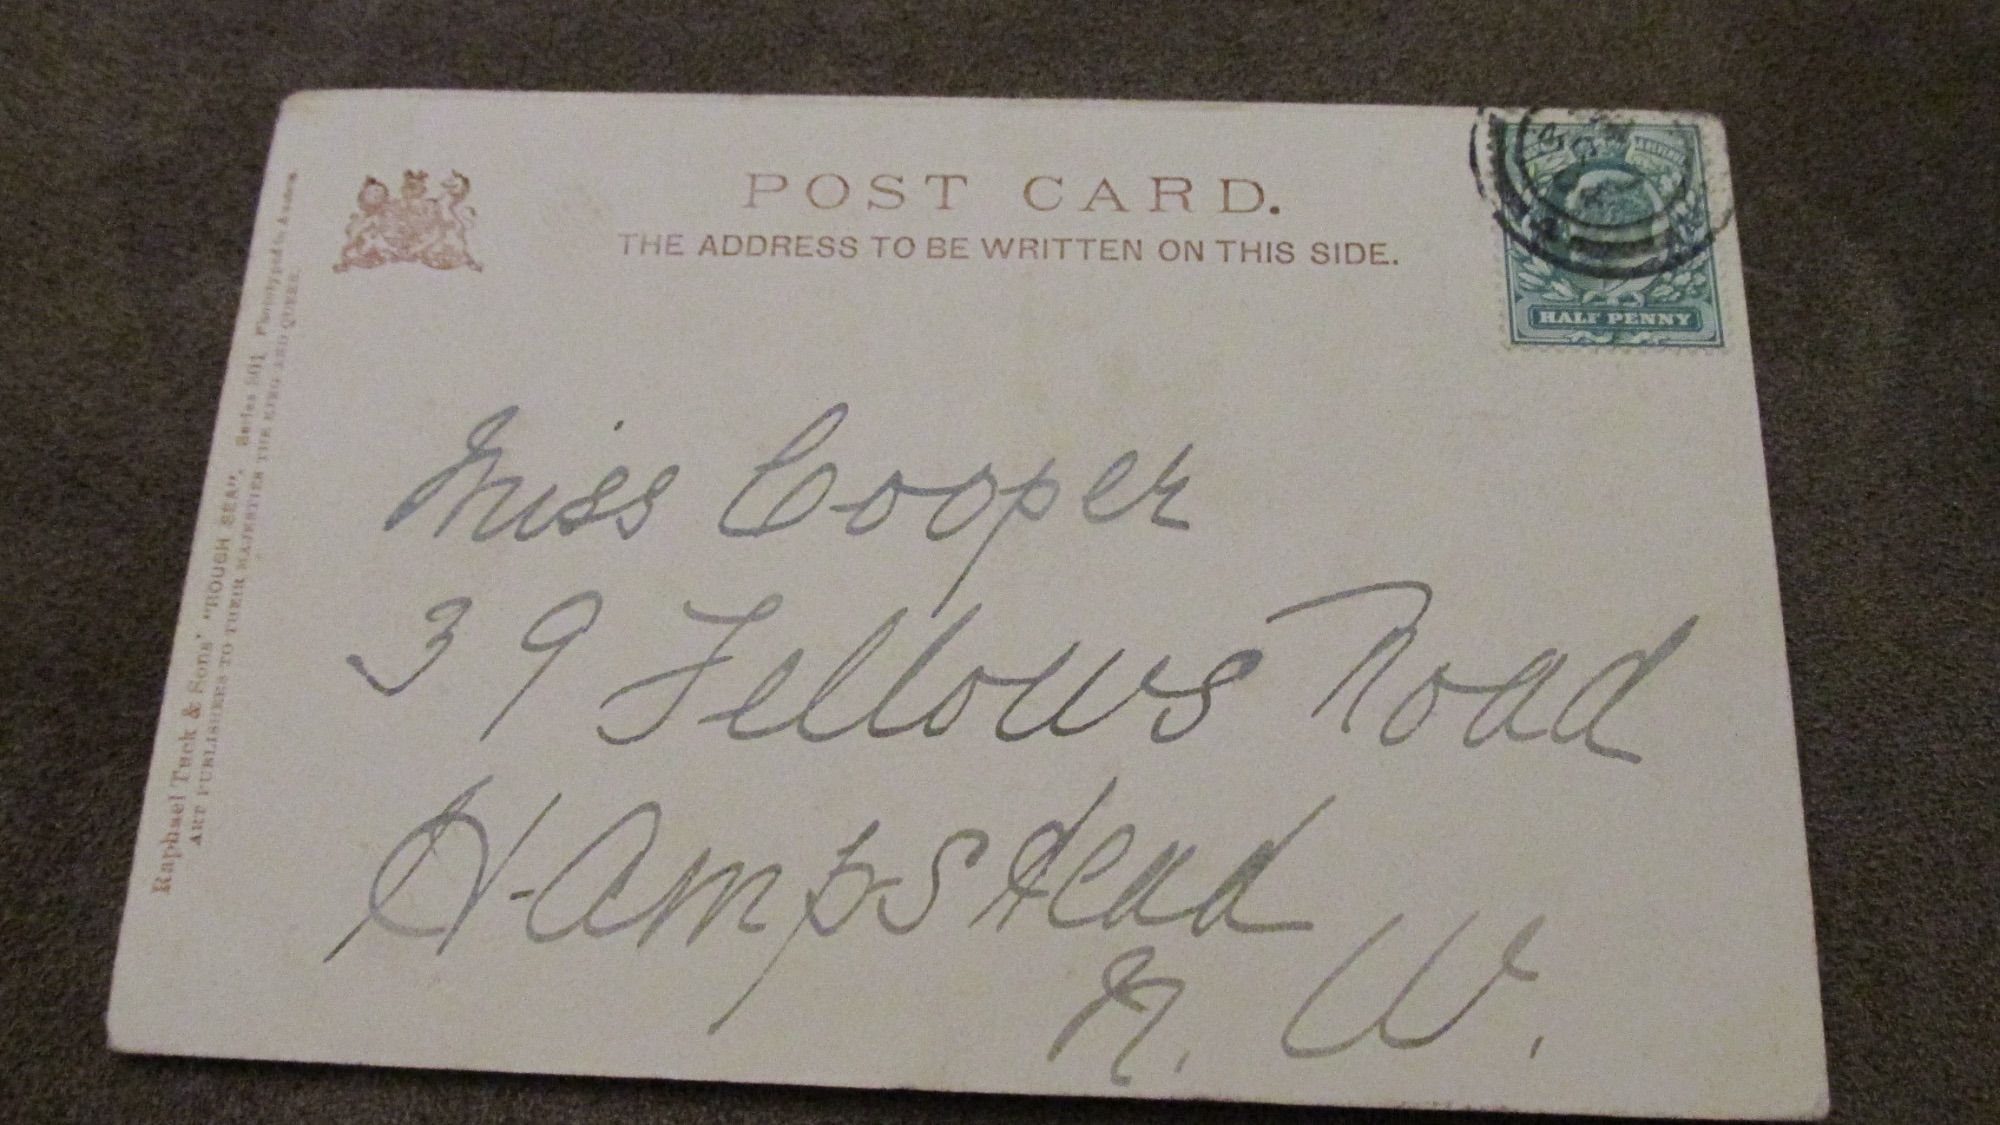 POST CARD.
THE ADDRESS TO BE WRITTEN ON THIS SIDE.
HALF PENNY
Miss Cooper
39 Fellows Road
Hampstead
N. W.
Raphael Tuck & Sons' "ROUGH SEA". Series 801. Phototyped in
ART PUBLISHERS TO THEIR MAJESTIES THE KING AND QUEEN.